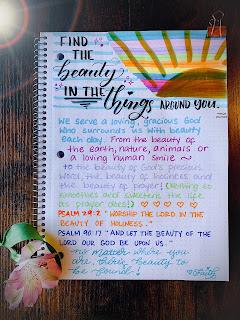 FIND
THE
beauty
IN THE things AROUND YOU.
We serve a loving, gracious God
Who surrounds us with beauty
Each day. From the beauty of
the earth, nature, animals or
a loving human smile ~
to the beauty of God's precious
Word, the beauty of holiness and
the beauty of prayer! (Nothing so
smoothes and sweetens the life
as prayer does!) ♡ ♡ ♡ ♡ ♡
PSALM 29:2 "WORSHIP THE LORD IN THE
BEAUTY OF HOLINESS."
PSALM 90:17 "AND LET THE BEAUTY OF THE
LORD OUR GOD BE UPON US."
~no matter where you
are there's beauty to
be found!
♡Faith